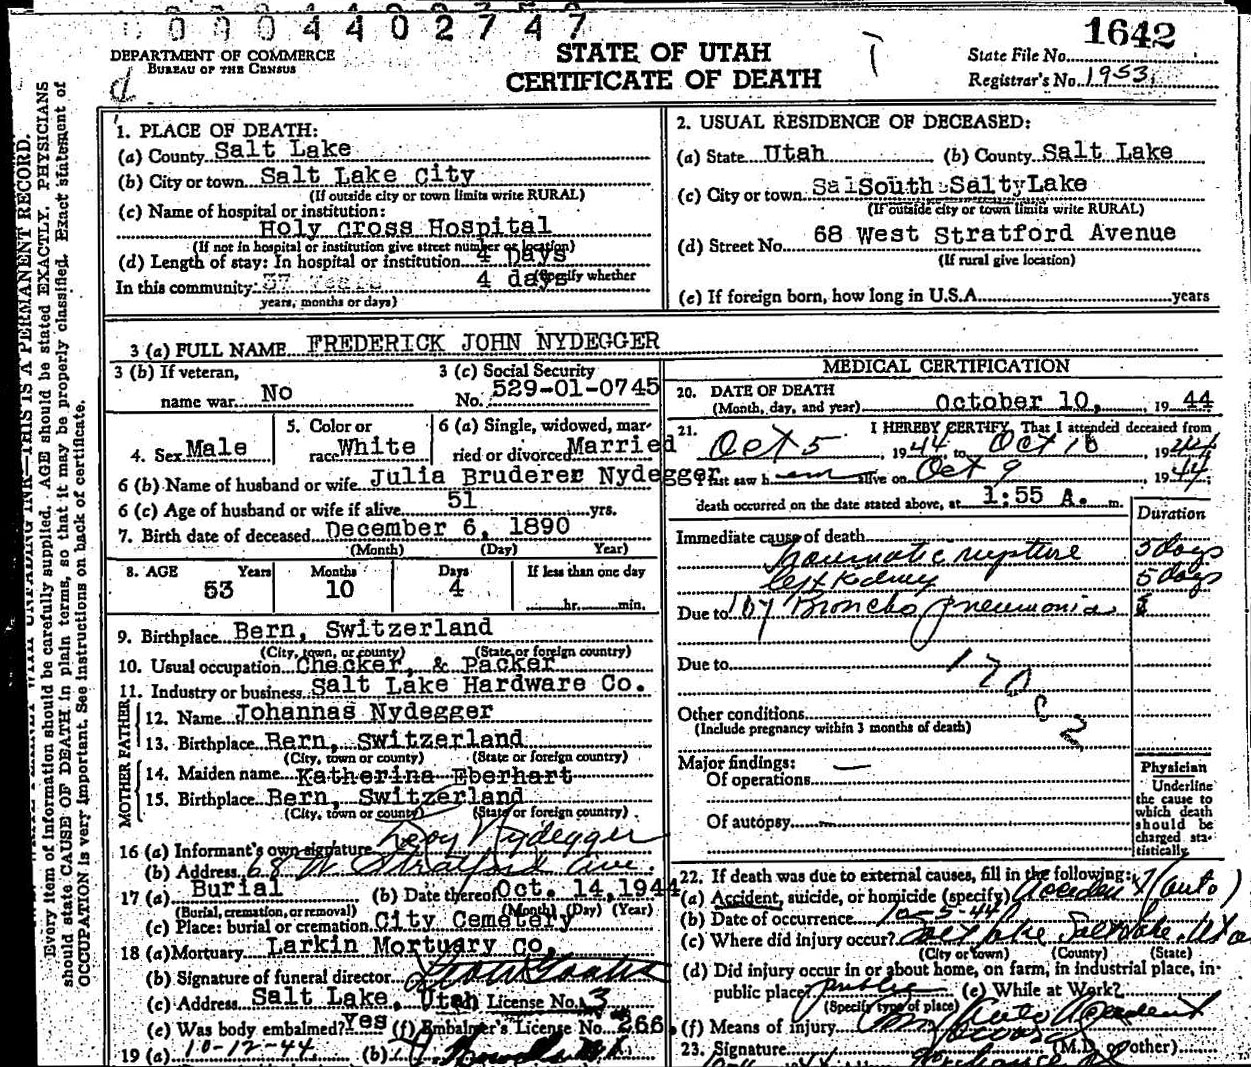 0 0 0 4 4 0 2 7 4 7
1642
DEPARTMENT OF COMMERCE
BUREAU OF THE CENSUS
STATE OF UTAH
CERTIFICATE OF DEATH
State File No.
Registrar's No. 1953
WITH UNFADING INK—THIS IS A PERMANENT RECORD.
Every item of information should be carefully supplied. AGE should be stated EXACTLY. PHYSICIANS
should state CAUSE OF DEATH in plain terms, so that it may be properly classified. Exact statement of
OCCUPATION is very important. See instructions on back of certificate.
1. PLACE OF DEATH:
(a) County Salt Lake
(b) City or town Salt Lake City
(If outside city or town limits write RURAL)
(c) Name of hospital or institution:
Holy Cross Hospital
(If not in hospital or institution give street number or location)
(d) Length of stay: In hospital or institution 4 Days
(Specify whether
In this community: 37 years 4 days
years, months or days)
2. USUAL RESIDENCE OF DECEASED:
(a) State Utah (b) County Salt Lake
(c) City or town South Salt Lake
(If outside city or town limits write RURAL)
(d) Street No. 68 West Stratford Avenue
(If rural give location)
(e) If foreign born, how long in U.S.A. years
3 (a) FULL NAME FREDERICK JOHN NYDEGGER
3 (b) If veteran,
name war No
3 (c) Social Security
No. 529-01-0745
4. Sex Male
5. Color or
race White
6 (a) Single, widowed, mar-
ried or divorced Married
6 (b) Name of husband or wife Julia Bruderer Nydegger
6 (c) Age of husband or wife if alive 51 yrs.
7. Birth date of deceased December 6, 1890
(Month) (Day) Year)
8. AGE Years Months Days If less than one day
53 10 4 hr. min.
9. Birthplace Bern, Switzerland
(City, town, or county) (State or foreign country)
10. Usual occupation Checker, & Packer
11. Industry or business Salt Lake Hardware Co.
FATHER
12. Name Johannas Nydegger
13. Birthplace Bern, Switzerland
(City, town or county) (State or foreign country)
MOTHER
14. Maiden name Katherina Eberhart
15. Birthplace Bern, Switzerland
(City, town or county) (State or foreign country)
16 (a) Informant's own signature Leroy Nydegger
(b) Address 68 W Stratford Ave.
17 (a) Burial (b) Date thereof Oct. 14, 1944
(Burial, cremation, or removal) (Month) (Day) (Year)
(c) Place: burial or cremation City Cemetery
18 (a) Mortuary Larkin Mortuary Co.
(b) Signature of funeral director
(c) Address Salt Lake, Utah License No. 3
(e) Was body embalmed? Yes (f) Embalmer's License No. 266
19 (a) 10-12-44 (b)
MEDICAL CERTIFICATION
20. DATE OF DEATH
(Month, day, and year) October 10, 1944
21. I HEREBY CERTIFY, That I attended deceased from
Oct 5, 1944 to Oct 10, 1944
I last saw him alive on Oct 9 1944;
death occurred on the date stated above, at 1:55 A. m.
Duration
Immediate cause of death
Traumatic rupture 5 days
left Kidney 5 days
Due to 107 Broncho pneumonia
Due to
170 c 2
Other conditions
(Include pregnancy within 3 months of death)
Major findings:
Of operations
Of autopsy
Physician
Underline
the cause to
which death
should be
charged sta-
tistically.
22. If death was due to external causes, fill in the following:
(a) Accident, suicide, or homicide (specify) Accident (auto)
(b) Date of occurrence 10-5-44
(c) Where did injury occur? Salt Lake Salt Lake
(City or town) (County) (State)
(d) Did injury occur in or about home, on farm, in industrial place, in
public place? public (e) While at Work?
(Specify type of place)
(f) Means of injury Auto Accident
23. Signature (M.D. or other)